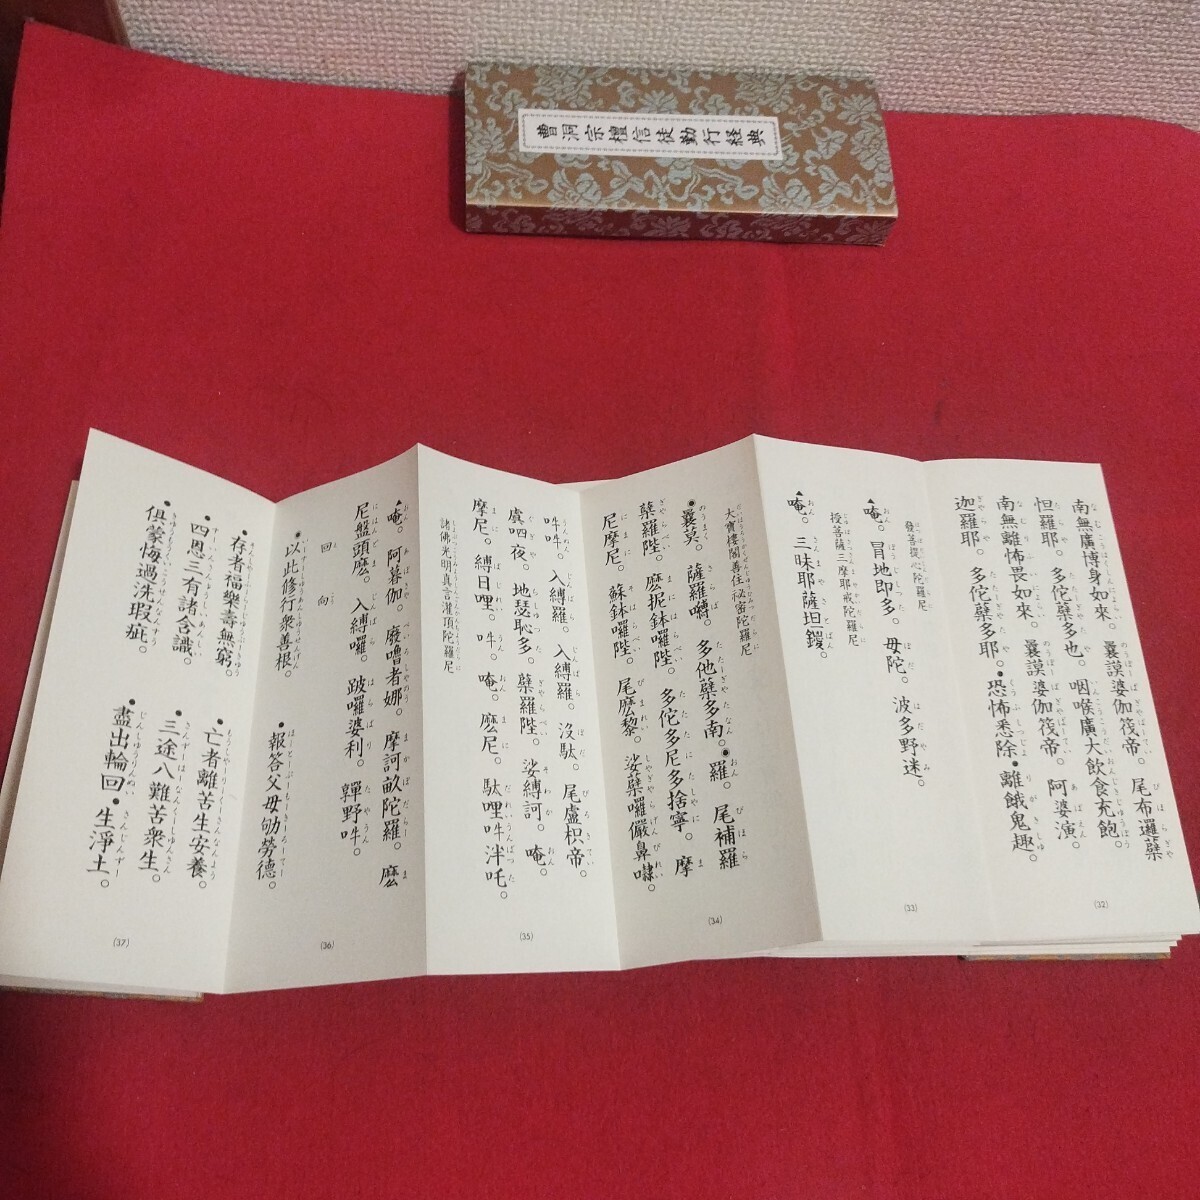 曹洞宗檀信徒勤行経典
南無廣博身如來。 曩謨婆伽筏帝。 尾布邏蘖
怛羅耶。 多佗蘖多也。 咽喉廣大飲食充飽。
南無離怖畏如來。 曩謨婆伽筏帝。 阿婆演。
迦羅耶。 多佗蘖多耶。 恐怖悉除 離餓鬼趣。
(32)
發菩提心陀羅尼
唵。 冒地即多。 母陀。 波多野迷。
授菩薩三摩耶戒陀羅尼
唵。 三昧耶薩坦鑁。
(33)
大寶樓閣善住祕密陀羅尼
曩莫。 薩羅嚩。 多他蘖多南。 羅。 尾補羅
蘖羅陛。 麽抳鉢囉陛。 多佗多尼多捨寧。 摩
尼摩尼。 蘇鉢囉陛。 尾麽黎。 娑蘖囉儼鼻㘑。
(34)
吽吽。 入縛羅。 入縛羅。 没駄。 尾盧枳帝。
虞呬夜。 地瑟恥多。 蘖羅陛。 娑縛訶。 唵。
摩尼。 縛日哩。 吽。 唵。 麽尼。 駄哩吽泮吒。
諸佛光明真言灌頂陀羅尼
(35)
唵。 阿暮伽。 廢嚕者娜。 摩訶畝陀羅。 麽
尼盤頭麽。 入縛囉。 跛囉婆利。 鞸野吽。
回向
以此修行衆善根。 報答父母劬勞德。
(36)
存者福樂壽無窮。 亡者離苦生安養。
四恩三有諸含識。 三途八難苦衆生。
俱蒙悔過洗瑕疵。 盡出輪回 生淨土。
(37)